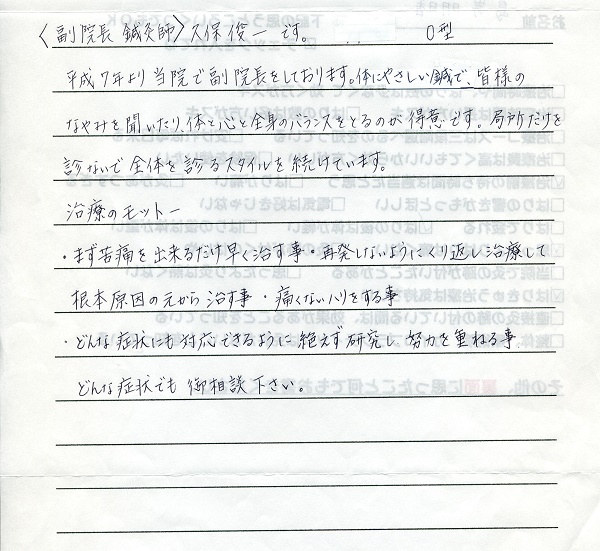 〈副院長 鍼灸師〉久保俊一です。 O型
平成7年より当院で副院長をしております。体にやさしい鍼で、皆様の
なやみを聞いたり、体と心と全身のバランスをとるのが得意です。局所だけを
診ないで全体を診るスタイルを続けています。
治療のモットー
・まず苦痛を出来るだけ早く治す事・再発しないようにくり返し治療して
根本原因の元から治す事・痛くないハリをする事
・どんな症状にも対応できるように絶えず研究し、努力を重ねる事
どんな症状でも御相談下さい。